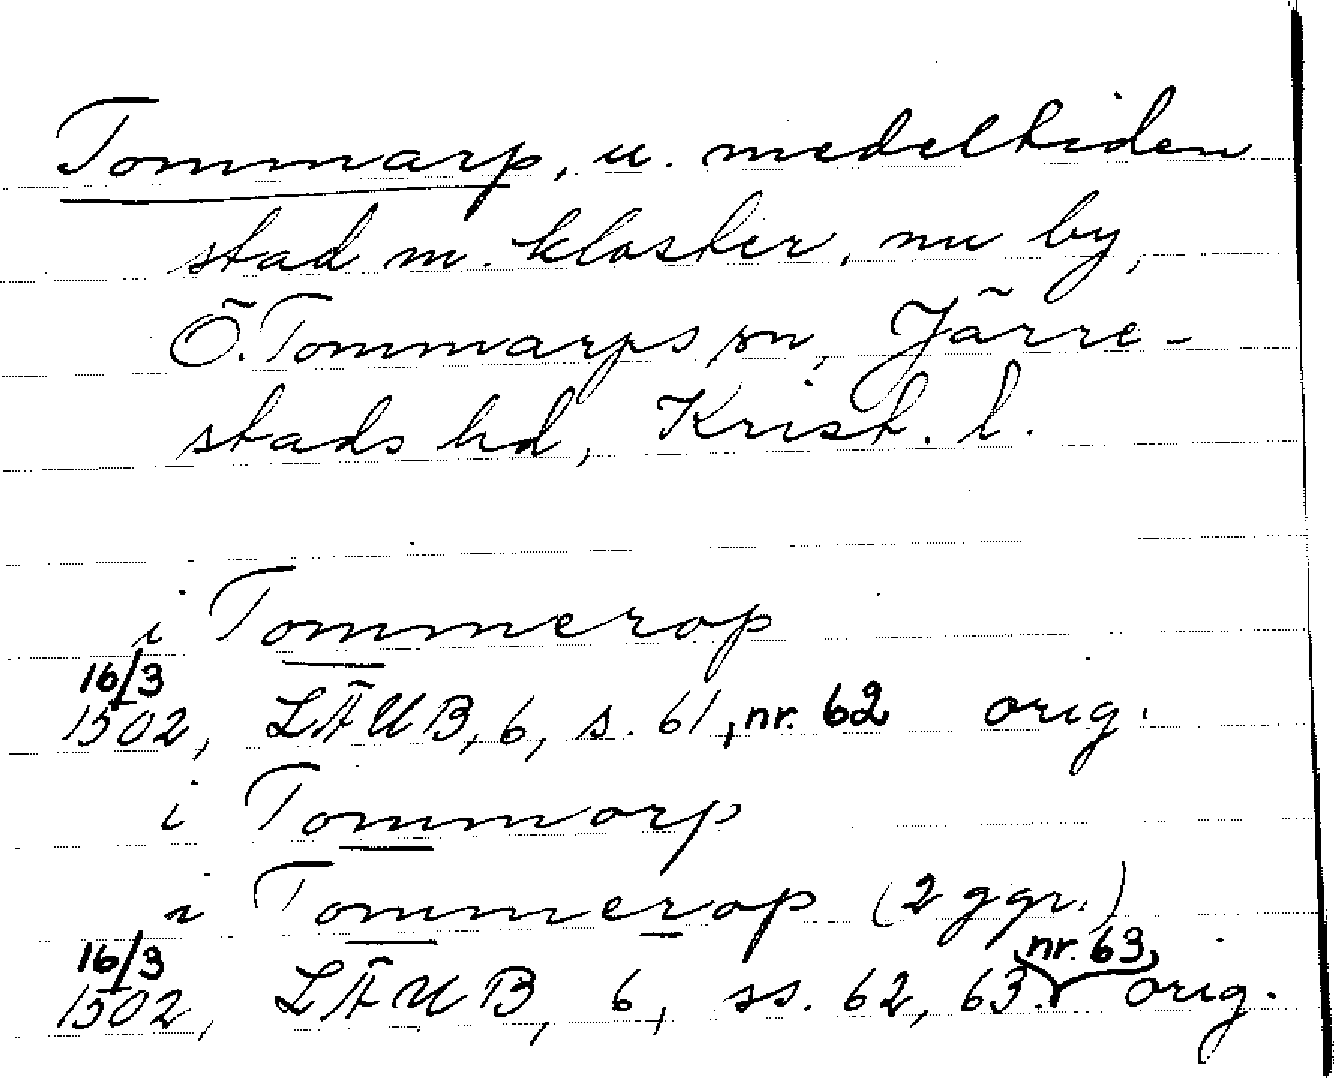 Tommarp, u. medeltiden
stad m. kloster, nu by,
Ö. Tommarps sn, Järre-
stads hd, Krist. l.
i Tommerop
16/3
1502, LÄUB, 6, s. 61, nr. 62 orig.
i Tommorp
i Tommerop (2 ggr.)
16/3
1502, LÄUB, 6, ss. 62, 63. nr. 63, orig.